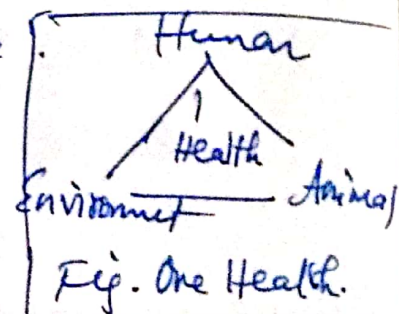 Human
Health
Environmet Animal
Fig. One Health.